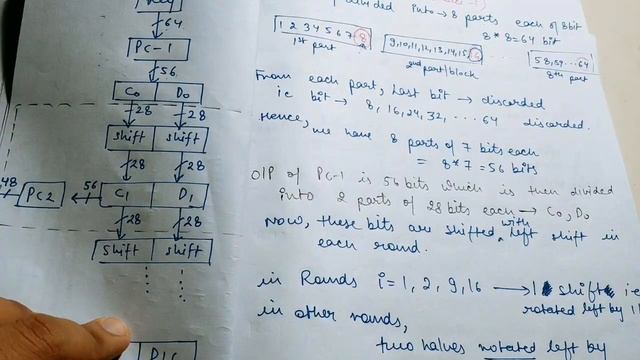 Key
64
PC-1
56
C0 D0
28 28
shift shift
28 28
48 PC2 56 C1 D1
28 28
shift shift
D16
divided into → 8 parts each of 8bit
8 * 8 = 64 bit
1 2 3 4 5 6 7 8
1st part
9,10,11,12,13,14,15,
2nd part/block
58,59...64
8th part
From each part, Last bit → discarded
ie bit → 8, 16, 24, 32, ... 64 discarded.
Hence, we have 8 parts of 7 bits each
= 8*7 = 56 bits
O/P of PC-1 is 56 bits which is then divided
into 2 parts of 28 bits each → C0, D0
Now, these bits are shifted with left shift in
each round.
in Rounds i = 1, 2, 9, 16 → 1 shift ie
rotated left by 1
in other rounds,
two halves rotated left by